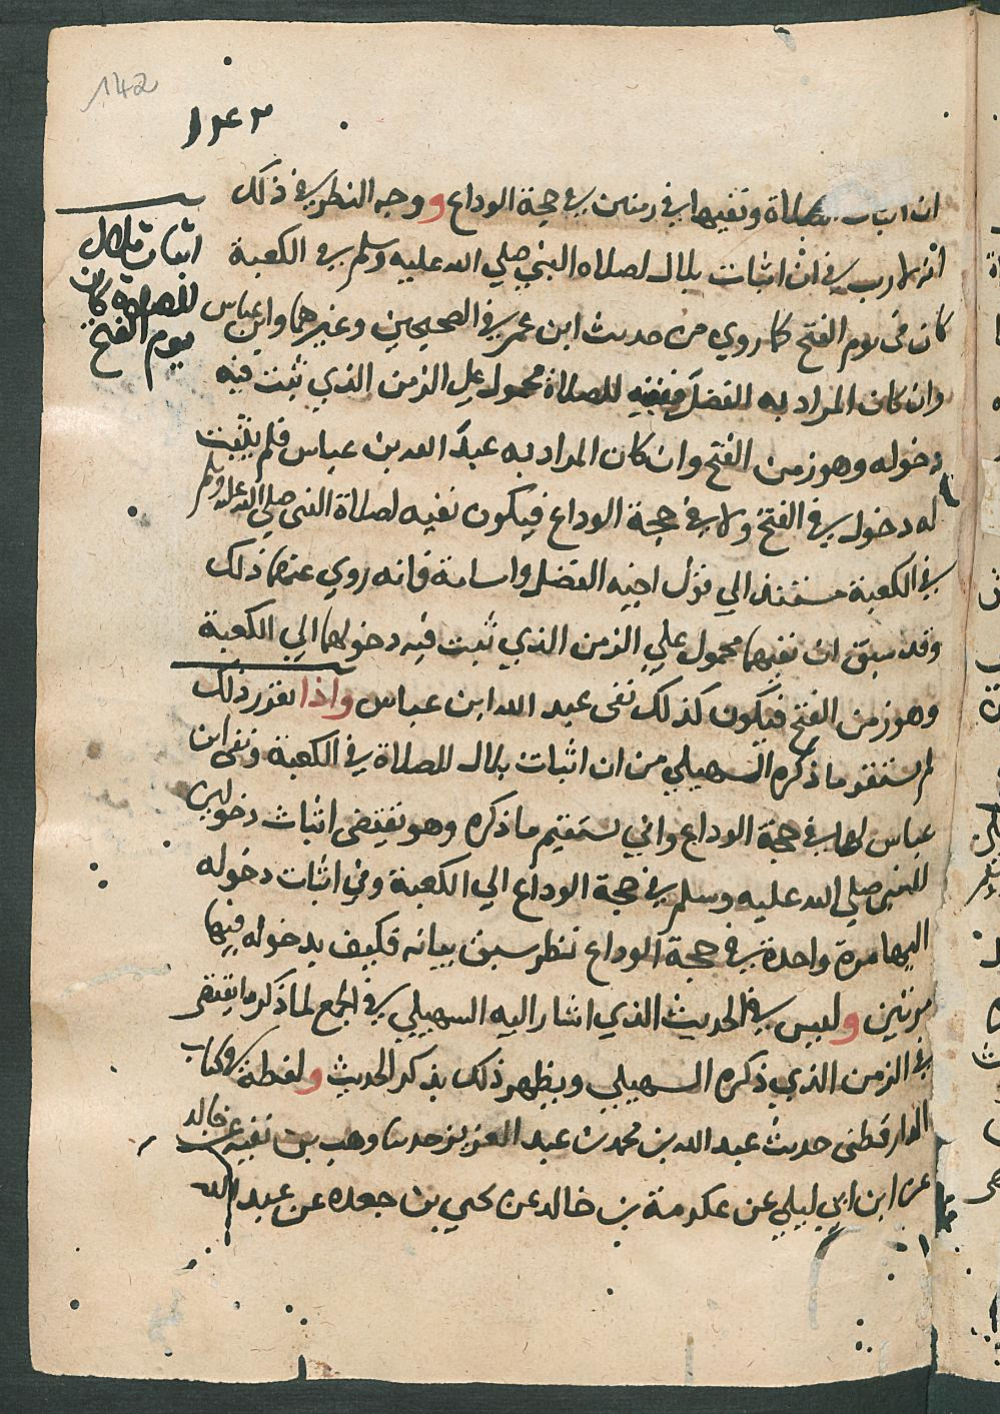 142
١٤٢
ان اثبات الصلاة ونفيها في زمنين في حجة الوداع ووجه النظر في ذلك
انه لا ريب في ان اثبات بلال لصلاه النبي صلي الله عليه وسلم في الكعبة
كان في يوم الفتح كما روي من حديث ابن عمر في الصحيحين وغيرهما وابن عباس
وان كان المراد به الفضل فنفيه للصلاة محمول علي الزمن الذي ثبت فيه
دخوله وهو زمن الفتح وان كان المراد به عبد الله بن عباس فلم يثبت
له دخول في الفتح ولا في حجة الوداع فيكون نفيه لصلاة النبي صلي الله عليه وسلم
في الكعبة مستند الي قول اخيه الفضل واسامة فانه روي عنهما ذلك
وقد سبق ان نفيهما محمول علي الزمن الذي ثبت فيه دخولهما الي الكعبة
وهو زمن الفتح فيكون كذلك نفى عبد الله ابن عباس واذا تقرر ذلك
لم يستقم ما ذكره السهيلي من ان اثبات بلال للصلاة في الكعبة ونفى ابن
عباس لها في حجة الوداع واني يستقيم ما ذكره وهو يقتضى اثبات دخولين
للنبي صلي الله عليه وسلم في حجة الوداع الي الكعبة وفي اثبات دخوله
اليها مرة واحدة في حجة الوداع نظر سبق بيانه فكيف بدخوله فيها
مرتين وليس في الحديث الذي اشار اليه السهيلي في الجمع لما ذكر ما يقتضى
في الزمن الذي ذكره السهيلي ويظهر ذلك بذكر الحديث ولفظة في كتاب
الدارقطنى حديث عبد الله بن محمد بن عبد العزيز حدثنا وهب بن بقيه عن خالد
عن ابن ابي ليلي عن عكرمة بن خالد عن يحي بن جعده عن عبد الله
اثبات بلال
للصلاة كان
يوم الفتح